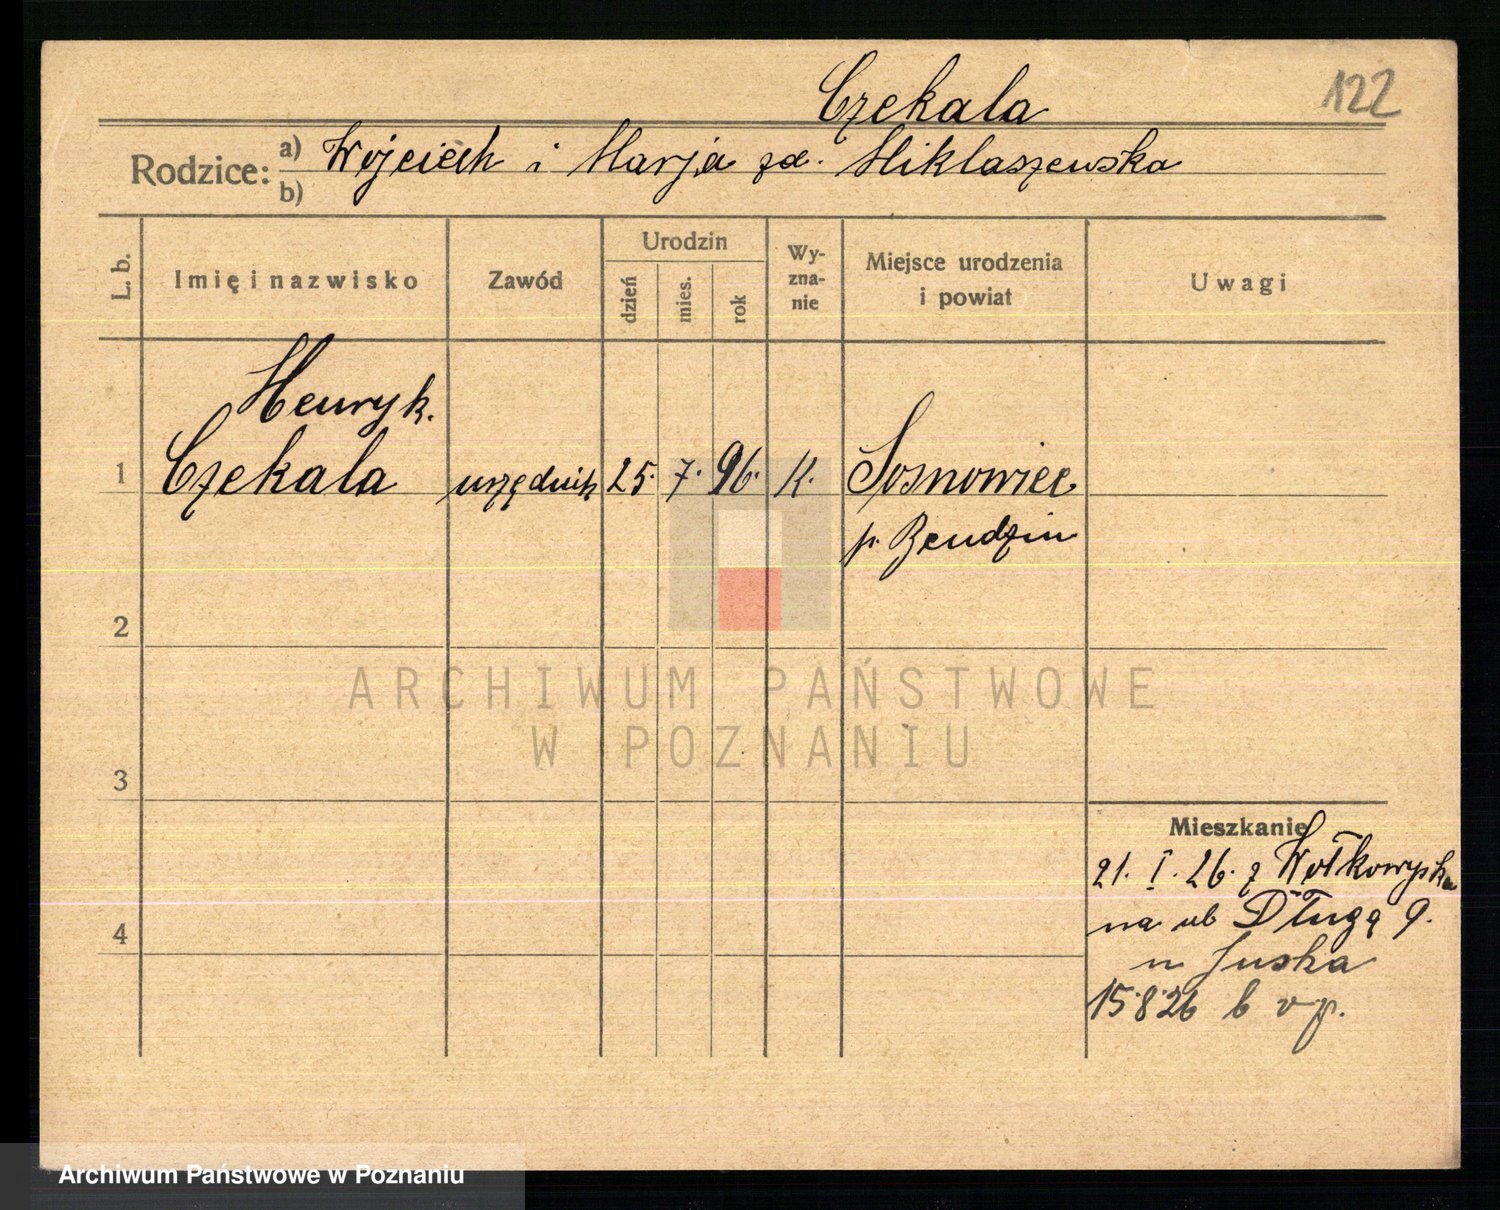 Czekala
122
Rodzice: a) Wojciech i Marja zd. Miklaszewska
b)
L. b.
Imię i nazwisko
Zawód
Urodzin
dzień
mies.
rok
Wy-
zna-
nie
Miejsce urodzenia
i powiat
Uwagi
Henryk.
1 Czekala urzędnik 25. 7. 96. K. Sosnowiec
p. Bendzin
2
ARCHIWUM PAŃSTWOWE
W POZNANIU
3
Mieszkanie
21. I. 26. z Wołkowyska
4
na ul Długą 9.
u Juska
15.8.26 b v p.
Archiwum Państwowe w Poznaniu